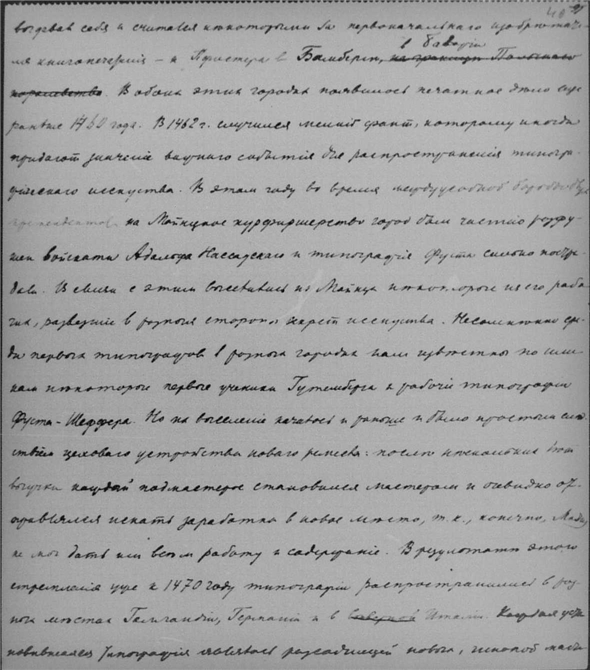 выдавал себя и считался некоторыми за первоначального изобретате-
ля книгопечатания – и Пфистера в Бамберге, в Баварии
королевства. В обоих этих городах появилось печатное дело еще
раньше 1460 года. В 1462 г. случился мелкий факт, которому иногда
придают значение важного события для распространения типогра-
фического искусства. В этом году во время междуусобной борьбы двух
претендентов на Майнцское курфиршество город был частию разру-
шен войсками Адольфа Нассауского и типография Фуста сильно постра-
дала. В связи с этим выселились из Майнца некоторые из его рабо-
чих, разнесшие в разныя стороны секрет искусства. Несомненно сре-
ди первых типографов в разных городах нам известны по име-
нам некоторые первые ученики Гутемберга и рабочие типографии
Фуста-Шеффера. Но на выселение началось и раньше и было простым след-
ствием цехового устройства нового ремесла: после нескольких лет
выучки каждый подмастерье становился мастером и очевидно от-
правлялся искать заработка в новое место, т.к., конечно, Майнц
не мог дать им всем работу и содержание. В результате этого
стремления уже к 1470 году типографии распространились в раз-
ных местах Голландии, Германии и в северной Италии. Каждая уста-
новившаяся типография являлась рассадницей новых, школой масте-